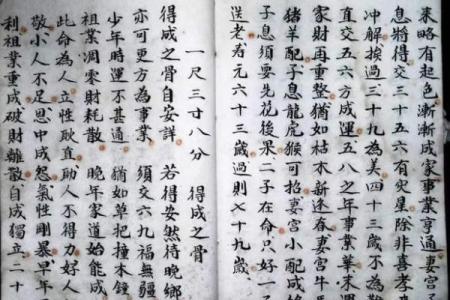 来略有起色漸漸成家事業亨通妻宮
息將得交三十五六有灾星除非喜孝
冲解挨過三十九為美四十三歲不為
直交五六方成運五八之年事業華
家財再重整猶如枯木新逢春妻宮牛
猪羊配子息龍虎猴可招妻宮小配成
子息須要先花後果二子在命只好一
送老若元六十三歲過則七十九歲
一尺三寸八分 得成之骨
得成之骨自安詳 若得安然待晚鄉
亦可更方為事業 須交六九福無疆
少年時運不甚通 猶如草把撞木鐘
祖業凋零財耗散 晚年家道始能成
此命為人立性耿直助人不得力好人
敬小人不足恩中成怨氣性剛暴早年
利祖業重成破財離散自成獨立二十